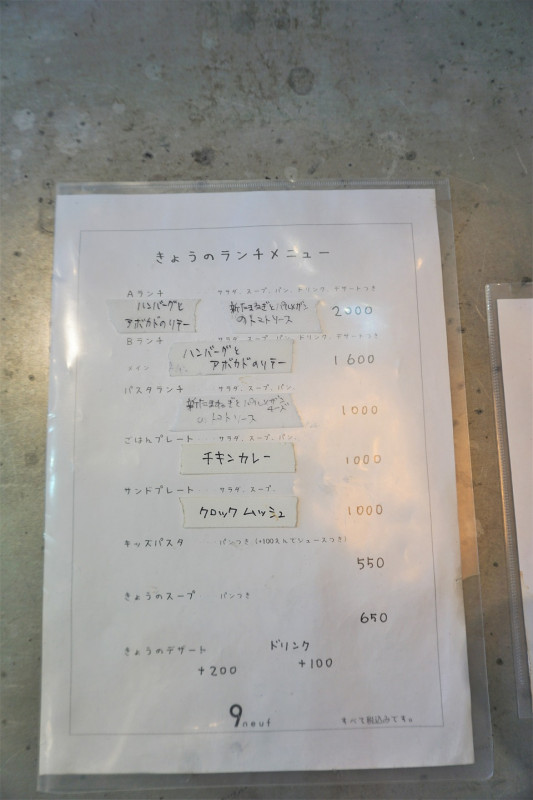 きょうのランチメニュー
Aランチ サラダ、スープ、パン、ドリンク、デザートつき
ハンバーグと 新たまねぎと
アボカドのソテー のトマトソース 2000
Bランチ サラダ、スープ、パン、ドリンク、デザートつき
メイン ハンバーグと
アボカドのソテー 1600
パスタランチ サラダ、スープ、パン、
新たまねぎと チーズ
トソース 1000
ごはんプレート サラダ、スープ、パン、
チキンカレー 1000
サンドプレート サラダ、スープ、
クロックムッシュ 1000
キッズパスタ パンつき (+100えんでジュースつき)
550
きょうのスープ パンつき
650
きょうのデザート ドリンク
+200 +100
9neuf すべて税込みです。